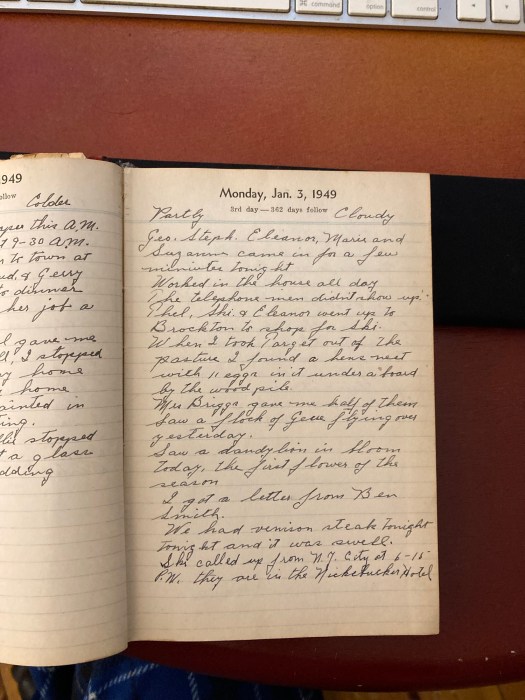 command
option
control
1949
follow
Colder
this A.M.
at 9-30 A.M.
to town at
& Gerry
to dinner
her job a
gave me
I stopped
home
home
painted in
stopped
a glass
Monday, Jan. 3, 1949
3rd day—362 days follow
Partly Cloudy
Geo. Steph. Eleanor, Marie and
Suzanne came in for a few
minuites tonight
Worked in the house all day
The telephone men didn't show up.
Thel, Ski. & Eleanor went up to
Brockton to shop for Ski.
When I took Target out of the
pasture I found a hens nest
with 11 eggs in it under a board
by the wood pile.
Mrs Briggs gave me half of them
Saw a flock of Geese flying over
yesterday.
Saw a dandylion in bloom
today, the first flower of the
season
I got a letter from Ben
Smith.
We had venison steak tonight
tonight and it was swell.
Ski called up from N.Y. City at 6-15
P.M. they are in the Hotel